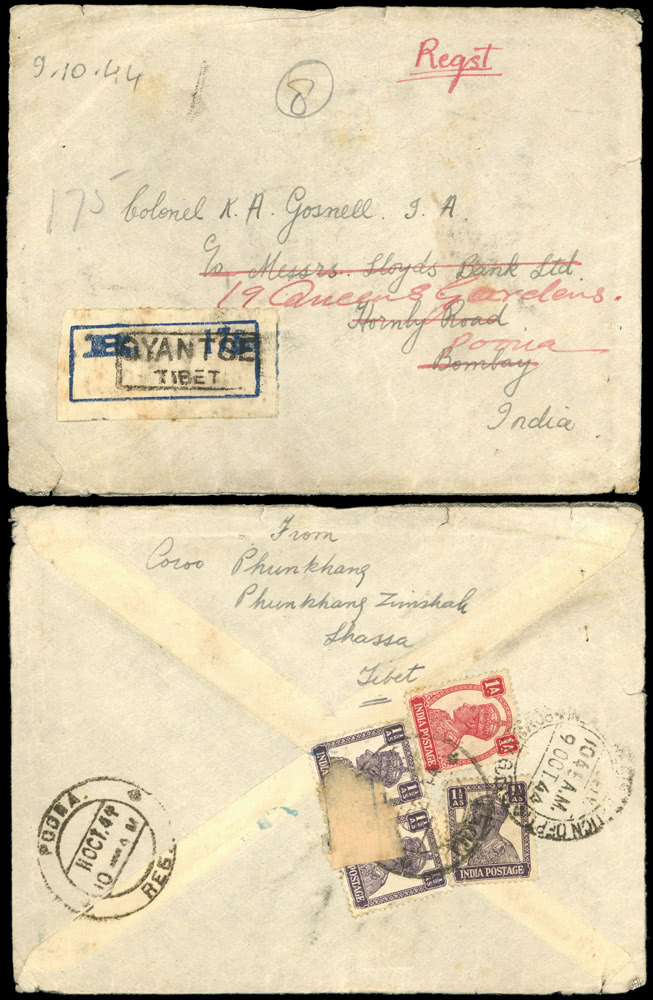 9.10.44
8
Regst
175
Colonel K. A. Gosnell. I. A.
c/o Messrs. Lloyds Bank Ltd.
19 Queens Gardens.
Hornby Road
Poona
Bombay
India
GYANTSE
TIBET
From
Coroo Phunkhang
Phunkhang Zimshak
Lhassa
Tibet
1A
INDIA POSTAGE
1A
1½ AS
INDIA
1½ AS
1½ AS
1½ AS
INDIA POSTAGE
10 45 A.M.
9 OCT. 44
POONA.
11 OCT. 44
10
REG.